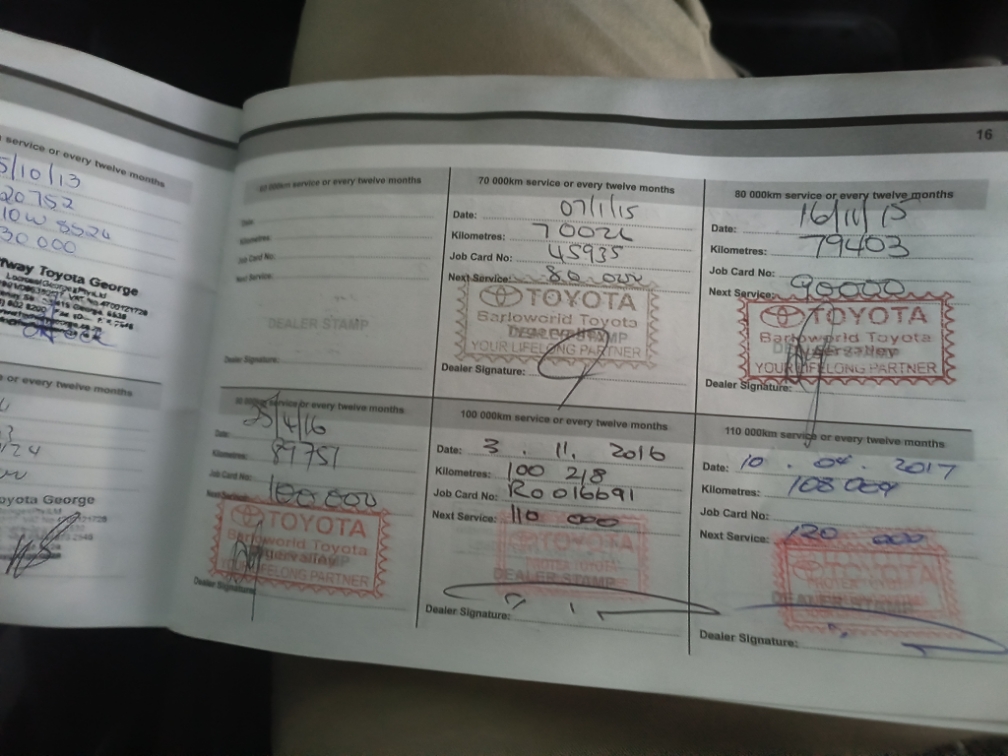 service or every twelve months
5/10/13
20752
10W 8526
30 000
fway Toyota George
16
60 000km service or every twelve months
Date:
Kilometres:
Job Card No:
Next Service:
DEALER STAMP
Dealer Signature:
70 000km service or every twelve months
Date: 07/1/15
Kilometres:
Job Card No: 45935
Next Service: 80 000
TOYOTA
Barloworld Toyota
YOUR LIFELONG PARTNER
Dealer Signature:
80 000km service or every twelve months
Date: 16/11/15
Kilometres: 79403
Job Card No:
Next Service: 90000
TOYOTA
Barloworld Toyota
YOUR LIFELONG PARTNER
Dealer Signature:
or every twelve months
oyota George
service or every twelve months
25/4/16
Date:
Kilometres: 89751
Job Card No:
Next Service: 100.000
TOYOTA
Barloworld Toyota
YOUR LIFELONG PARTNER
Dealer Signature:
100 000km service or every twelve months
Date: 3 . 11. 2016
Kilometres: 100 218
Job Card No: R0016691
Next Service: 110 000
TOYOTA
DEALER STAMP
Dealer Signature:
110 000km service or every twelve months
Date: 10 . 04 . 2017
Kilometres: 108 009
Job Card No:
Next Service: 120 000
TOYOTA
DEALER STAMP
Dealer Signature: